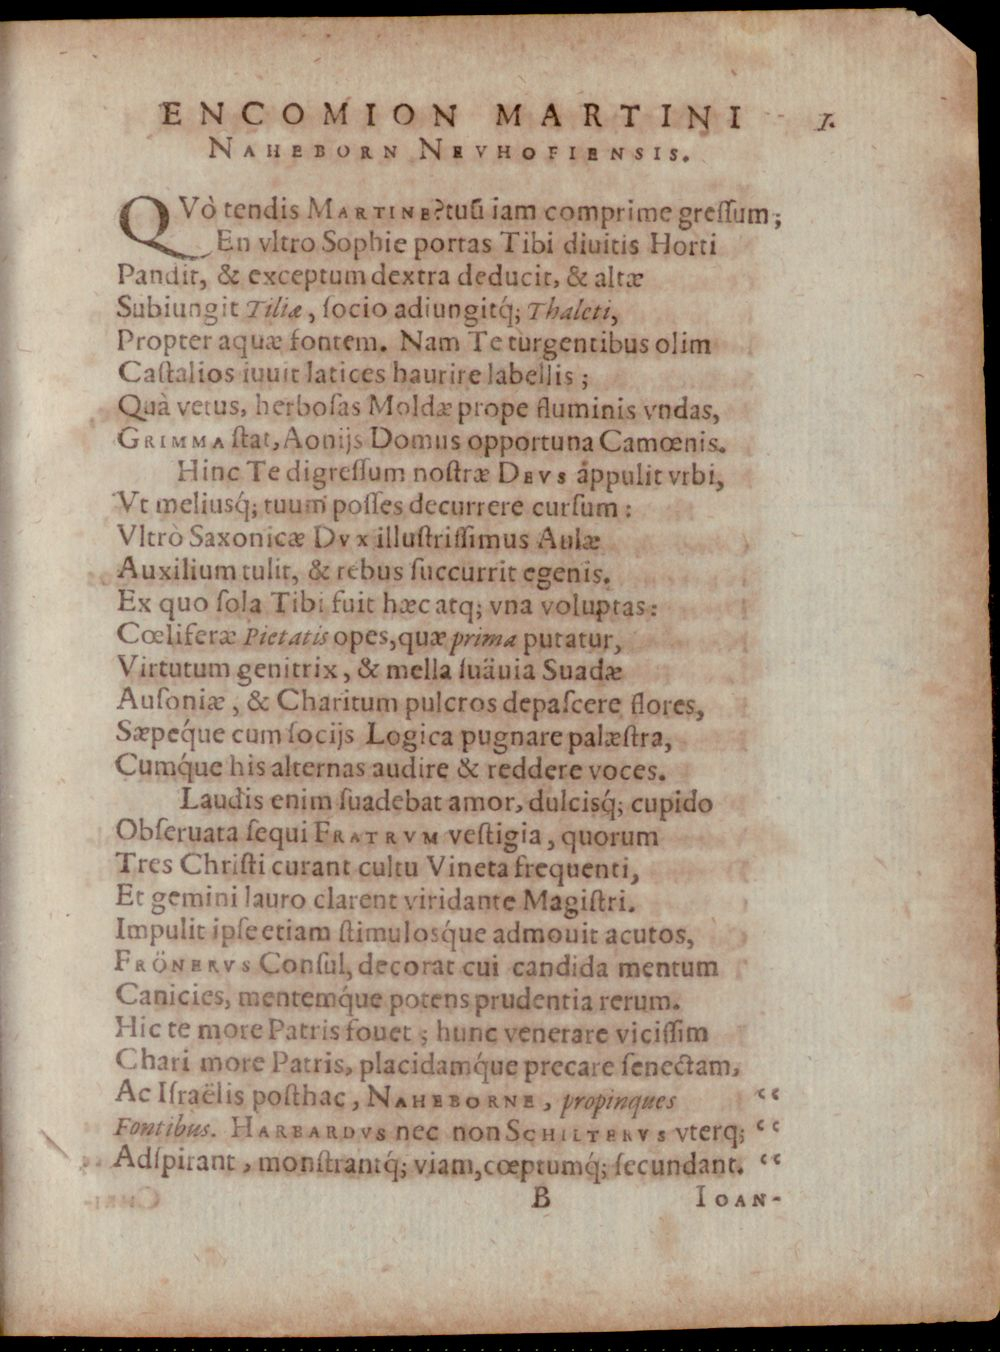 ENCOMION MARTINI I.
NAHEBORN NEVHOFIENSIS.
QVò tendis MARTINE? tuũ iam comprime greſſum;
En vltro Sophie portas Tibi diuitis Horti
Pandit, & exceptum dextra deducit, & altæ
Subiungit Tiliæ, ſocio adiungitq́; Thaleti,
Propter aquæ fontem. Nam Te turgentibus olim
Caſtalios iuuit latices haurire labellis;
Quà vetus, herboſas Moldæ prope fluminis vndas,
GRIMMA ſtat, Aonijs Domus opportuna Camœnis.
Hinc Te digreſſum noſtræ DEVS appulit vrbi,
Vt meliusq́; tuum poſſes decurrere curſum:
Vltrò Saxonicæ DVX illuſtriſſimus Aulæ
Auxilium tulit, & rebus ſuccurrit egenis.
Ex quo ſola Tibi fuit hæc atq; vna voluptas:
Cœliferæ Pietatis opes, quæ prima putatur,
Virtutum genitrix, & mella ſuäuia Suadæ
Auſoniæ, & Charitum pulcros depaſcere flores,
Sæpeq́ue cum ſocijs Logica pugnare palæſtra,
Cumq́ue his alternas audire & reddere voces.
Laudis enim ſuadebat amor, dulcisq́; cupido
Obſeruata ſequi FRATRVM veſtigia, quorum
Tres Chriſti curant cultu Vineta frequenti,
Et gemini lauro clarent viridante Magiſtri.
Impulit ipſe etiam ſtimulosq́ue admouit acutos,
FRÖNERVS Conſul, decorat cui candida mentum
Canicies, mentemq́ue potens prudentia rerum.
Hic te more Patris fouet; hunc venerare viciſſim
Chari more Patris, placidamq́ue precare ſenectam,
Ac Iſraëlis poſthac, NAHEBORNE, propinques “
Fontibus. HARBARDVS nec non SCHILTERVS vterq; “
Adſpirant, monſtrantq́; viam, cœptumq́; ſecundant. “
B IOAN-